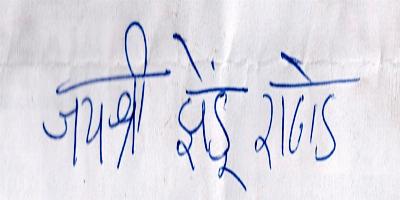 जयश्री झेंडू राठोड